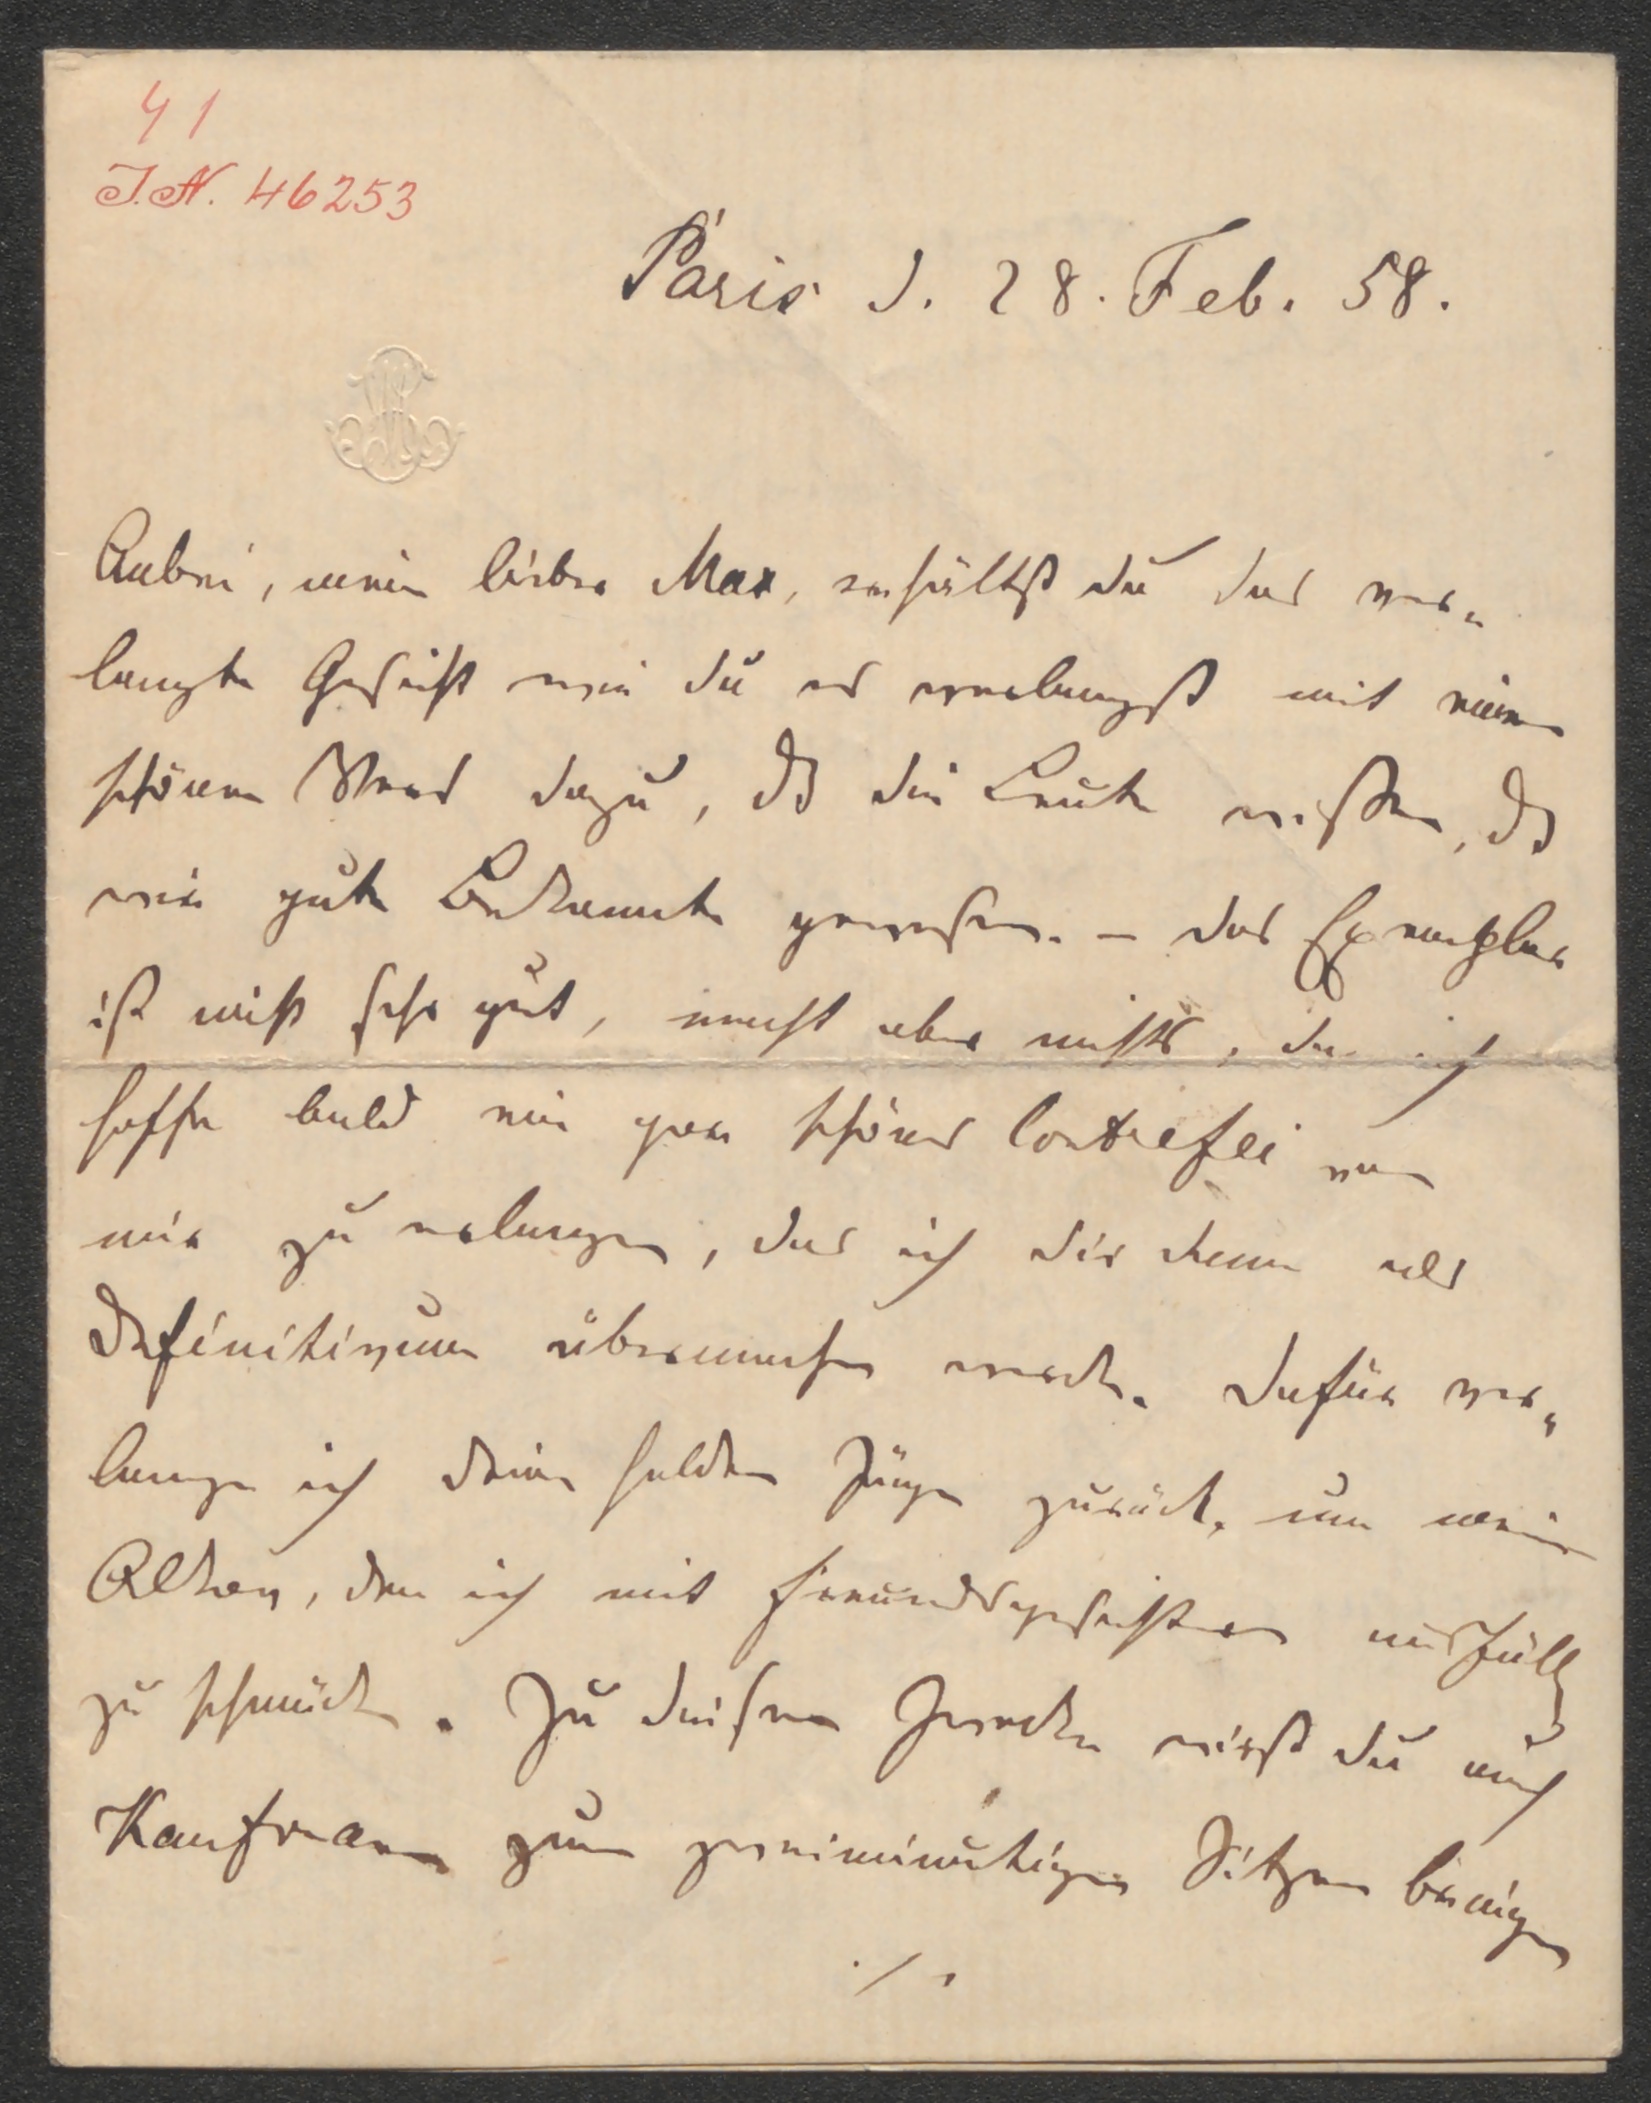 41
I.N. 46253
Paris d. 28. Feb. 58.
Anbei, mein lieber Max, erhältst du das ver-
langte Gesicht wie du es verlangst mit einem
schönen Vers dazu, dß die Leute wissen, dß
wir gute Bekannte gewesen. – Das Exemplar
ist nicht sehr gut, macht aber nichts, da ich
hoffe bald ein gar schönes Contrefei von
mir zu erlangen, das ich dir dann als
Definitivum übermachen werde. Dafür ver-
lange ich deine holden Züge zurück, um mein
Album, den ich mit Freundsgesichtern ausfülle
zu schmücken. Zu diesem Zwecke wirst du auch
Kaufmann zum zweiminutigen Sitzen bringen
./.